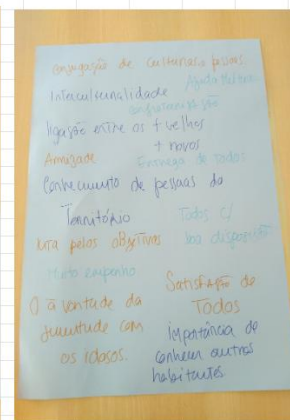 Conjugação de culturas e pessoas
Interculturalidade
Ajuda Mútua
Confraternização
ligação entre os + velhos
+ novos
Amizade
Entrega de todos
Conhecimento de pessoas do
Território
Todos c/
luta pelos objetivos
boa disposição
Muito empenho
O à vontade da
Juventude com
os idosos.
Satisfação de
Todos
importância de
conhecer outros
habitantes